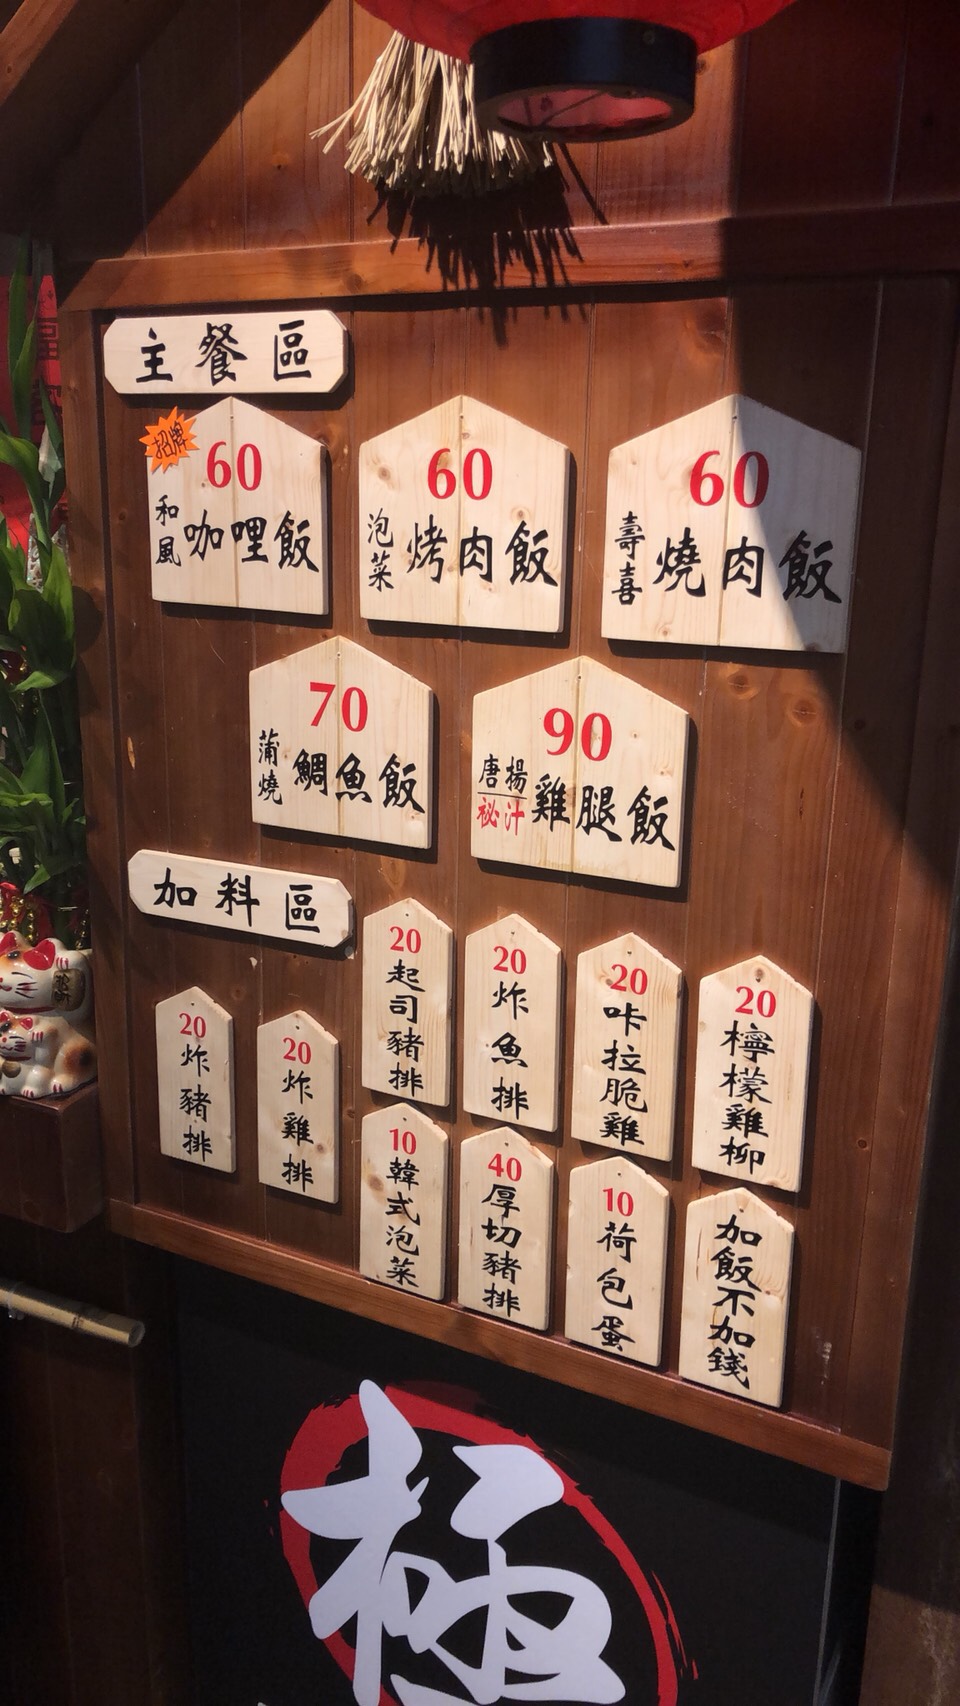 主餐區
招牌
60
和風咖哩飯
60
泡菜烤肉飯
60
壽喜燒肉飯
70
蒲燒鯛魚飯
90
唐揚秘汁雞腿飯
加料區
20
炸豬排
20
炸雞排
20
起司豬排
20
炸魚排
20
咔拉脆雞
20
檸檬雞柳
10
韓式泡菜
40
厚切豬排
10
荷包蛋
加飯不加錢
極